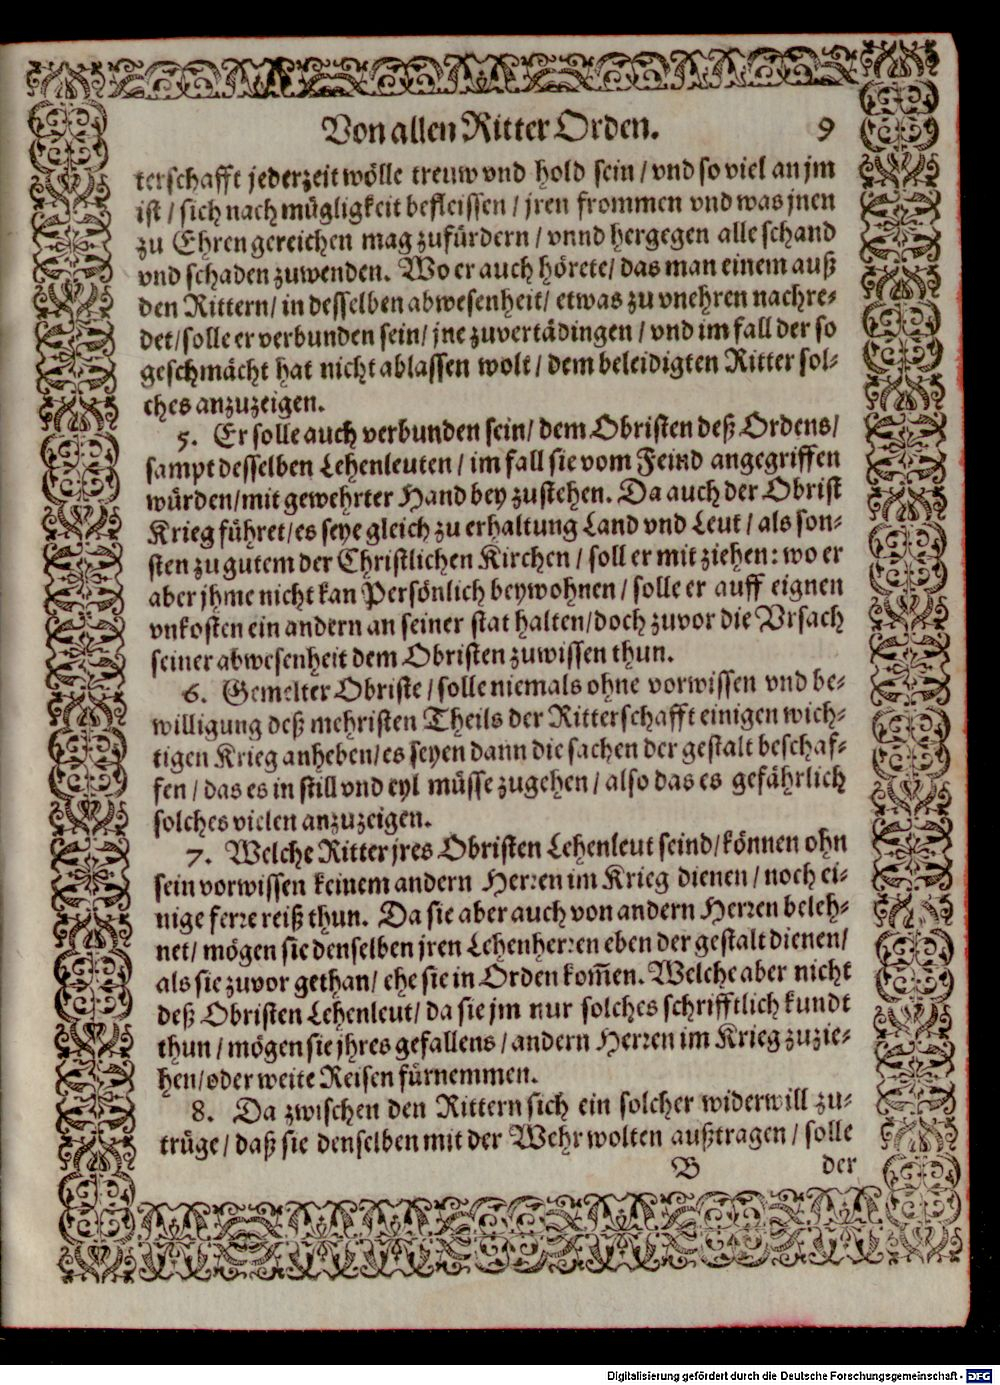 Von allen Ritter Orden. 9
terschafft jederzeit wölle treuw vnd hold sein / vnd so viel an jm
ist / sich nach mügligkeit befleissen / jren frommen vnd was jnen
zu Ehren gereichen mag zufürdern / vnnd hergegen alle schand
vnd schaden zuwenden. Wo er auch hörete / das man einem auß
den Rittern / in desselben abwesenheit / etwas zu vnehren nachre-
det / solle er verbunden sein / jne zuvertädingen / vnd im fall der so
geschmächt hat nicht ablassen wolt / dem beleidigten Ritter sol-
ches anzuzeigen.
5. Er solle auch verbunden sein / dem Obristen deß Ordens /
sampt desselben Lehenleuten / im fall sie vom Feind angegriffen
würden / mit gewehrter Hand bey zustehen. Da auch der Obrist
Krieg führet / es seye gleich zu erhaltung Land vnd Leut / als son-
sten zu gutem der Christlichen Kirchen / soll er mit ziehen: wo er
aber jhme nicht kan Persönlich beywohnen / solle er auff eignen
vnkosten ein andern an seiner stat halten / doch zuvor die Vrsach
seiner abwesenheit dem Obristen zuwissen thun.
6. Gemelter Obriste / solle niemals ohne vorwissen vnd be-
willigung deß mehristen Theils der Ritterschafft einigen wich-
tigen Krieg anheben / es seyen dann die sachen der gestalt beschaf-
fen / das es in still vnd eyl müsse zugehen / also das es gefährlich
solches vielen anzuzeigen.
7. Welche Ritter jres Obristen Lehenleut seind / können ohn
sein vorwissen keinem andern Herren im Krieg dienen / noch ei-
nige ferre reiß thun. Da sie aber auch von andern Herren beleh-
net / mögen sie denselben jren Lehenherren eben der gestalt dienen /
als sie zuvor gethan / ehe sie in Orden kom̃en. Welche aber nicht
deß Obristen Lehenleut / da sie jm nur solches schrifftlich kundt
thun / mögen sie jhres gefallens / andern Herren im Krieg zuzie-
hen / oder weite Reisen fürnemmen.
8. Da zwischen den Rittern sich ein solcher widerwill zu-
trüge / daß sie denselben mit der Wehr wolten außtragen / solle
B der
Digitalisierung gefördert durch die Deutsche Forschungsgemeinschaft - DFG